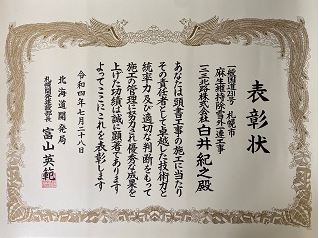 表彰状
一般国道231号 札幌市
麻生維持除雪外一連工事
三北路株式会社
白井紀之殿
あなたは頭書工事の施工に当たり
その責任者として卓越した技術力と
統率力及び適切な判断をもって
施工の管理に努力され優秀な成果を
上げた功績は誠に顕著であります
よってここにこれを表彰します
令和四年七月二十八日
北海道開発局
札幌開発建設部長 富山英範